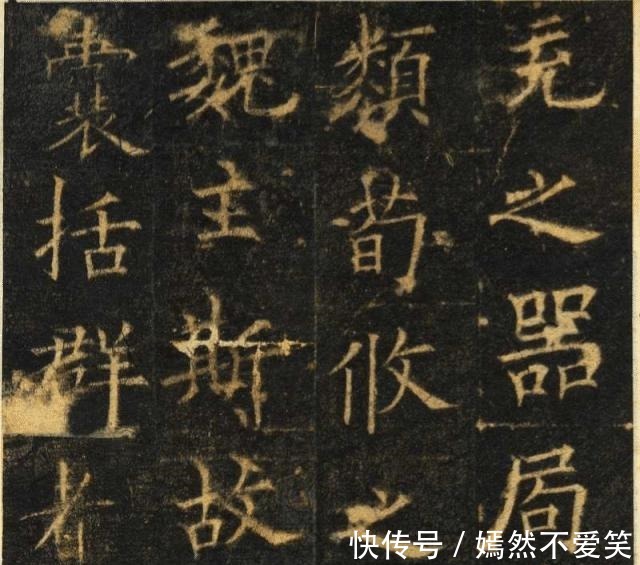 充之器局
類荀攸之
魏主斯故
囊括群者
快传号 / 嫣然不爱笑